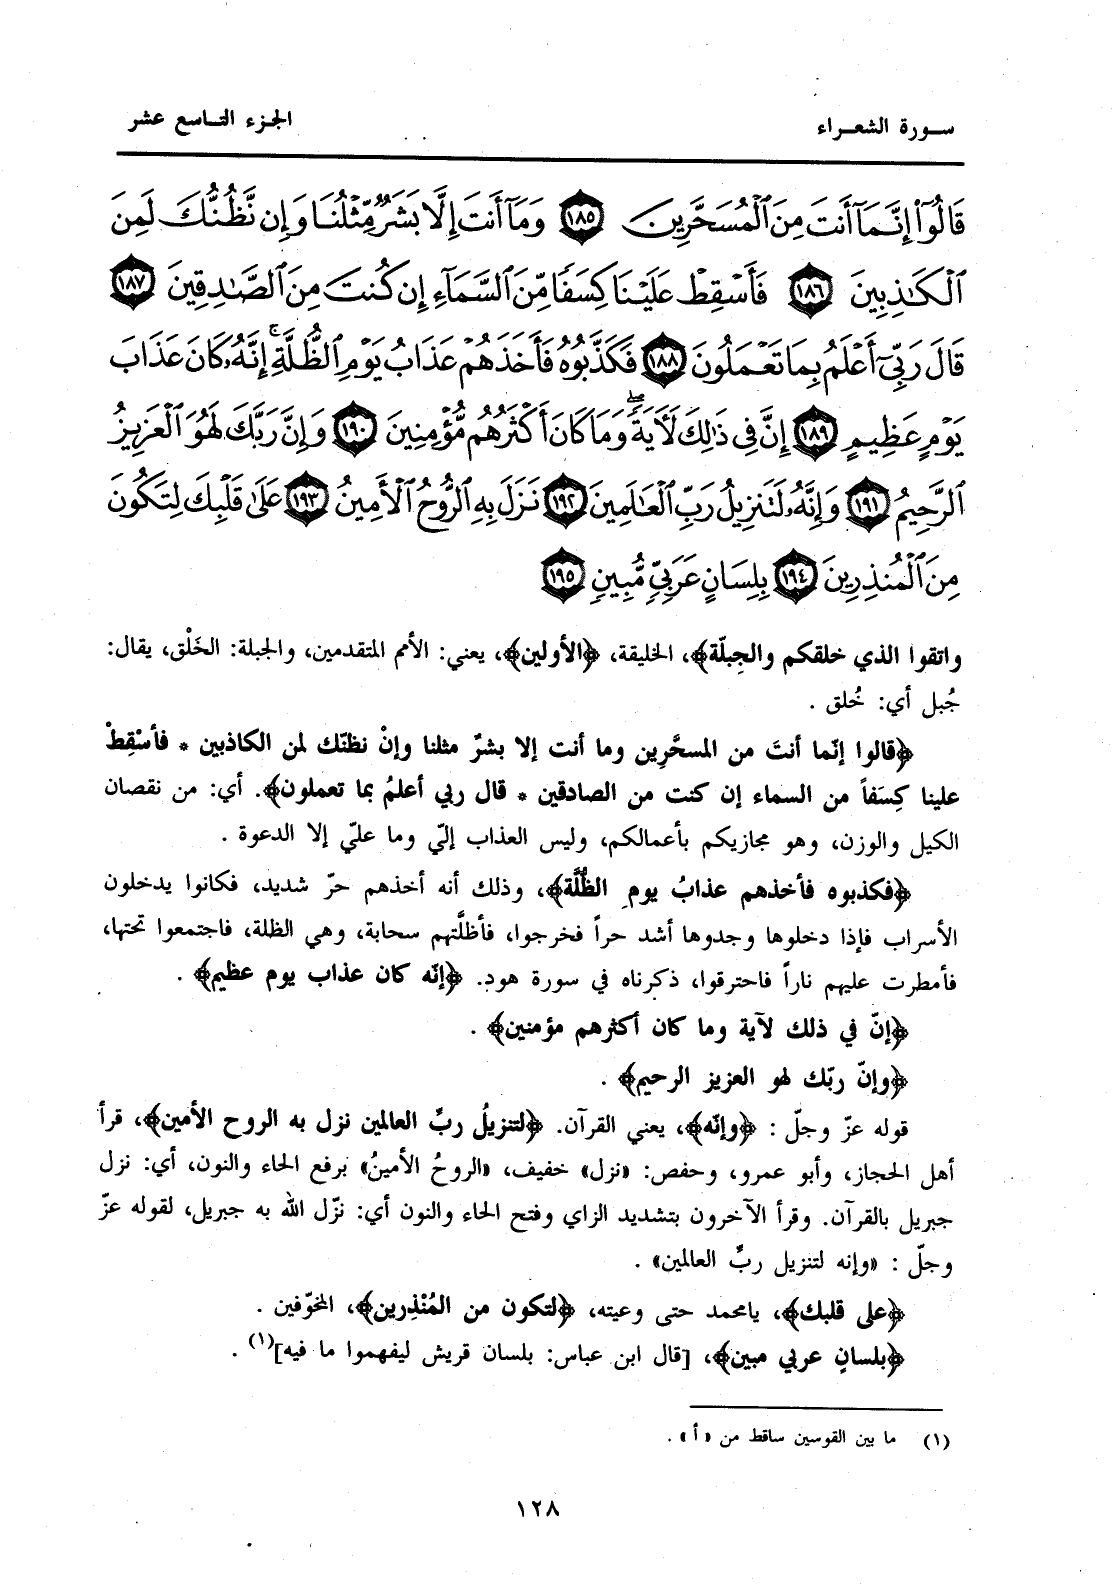 سورة الشعراء
الجزء التاسع عشر
قَالُوٓا۟ إِنَّمَآ أَنتَ مِنَ ٱلْمُسَحَّرِينَ ١٨٥ وَمَآ أَنتَ إِلَّا بَشَرٌ مِّثْلُنَا وَإِن نَّظُنُّكَ لَمِنَ
ٱلْكَٰذِبِينَ ١٨٦ فَأَسْقِطْ عَلَيْنَا كِسَفًا مِّنَ ٱلسَّمَآءِ إِن كُنتَ مِنَ ٱلصَّٰدِقِينَ ١٨٧
قَالَ رَبِّىٓ أَعْلَمُ بِمَا تَعْمَلُونَ ١٨٨ فَكَذَّبُوهُ فَأَخَذَهُمْ عَذَابُ يَوْمِ ٱلظُّلَّةِ ۚ إِنَّهُۥ كَانَ عَذَابَ
يَوْمٍ عَظِيمٍ ١٨٩ إِنَّ فِى ذَٰلِكَ لَءَايَةً ۖ وَمَا كَانَ أَكْثَرُهُم مُّؤْمِنِينَ ١٩٠ وَإِنَّ رَبَّكَ لَهُوَ ٱلْعَزِيزُ
ٱلرَّحِيمُ ١٩١ وَإِنَّهُۥ لَتَنزِيلُ رَبِّ ٱلْعَٰلَمِينَ ١٩٢ نَزَلَ بِهِ ٱلرُّوحُ ٱلْأَمِينُ ١٩٣ عَلَىٰ قَلْبِكَ لِتَكُونَ
مِنَ ٱلْمُنذِرِينَ ١٩٤ بِلِسَانٍ عَرَبِىٍّ مُّبِينٍ ١٩٥
واتقوا الذي خلقكم والجِبلّة﴾، الخليقة، ﴿الأولين﴾، يعني: الأمم المتقدمين، والجبلة: الخَلْق، يقال:
جُبل أي: خُلق .
﴿قالوا إنّما أنتَ من المسحَّرِين وما أنت إلا بشرٌ مثلنا وإنْ نظنّك لمن الكاذبين * فأسْقِطْ
علينا كِسَفاً من السماء إن كنت من الصادقين * قال ربي أعلمُ بما تعملون﴾. أي: من نقصان
الكيل والوزن، وهو مجازيكم بأعمالكم، وليس العذاب إليّ وما عليّ إلا الدعوة .
﴿فكذبوه فأخذهم عذابُ يومِ الظُلَّة﴾، وذلك أنه أخذهم حرّ شديد، فكانوا يدخلون
الأسراب فإذا دخلوها وجدوها أشد حراً فخرجوا، فأظلَّتهم سحابة، وهي الظلة، فاجتمعوا تحتها،
فأمطرت عليهم ناراً فاحترقوا، ذكرناه في سورة هود. ﴿إنّه كان عذاب يوم عظيم﴾ .
﴿إنّ في ذلك لآية وما كان أكثرهم مؤمنين﴾ .
﴿وإنّ ربّك لهو العزيز الرحيم﴾ .
قوله عزّ وجلّ : ﴿وإنّه﴾، يعني القرآن. ﴿لتنزيلُ ربِّ العالمين نزل به الروح الأمين﴾، قرأ
أهل الحجاز، وأبو عمرو، وحفص: «نزل» خفيف، «الروحُ الأمينُ» برفع الحاء والنون، أي: نزل
جبريل بالقرآن. وقرأ الآخرون بتشديد الزاي وفتح الحاء والنون أي: نزّل الله به جبريل، لقوله عزّ
وجلّ : «وإنه لتنزيل ربِّ العالمين» .
﴿على قلبك﴾، يامحمد حتى وعيته، ﴿لتكون من المُنْذِرين﴾، المخوّفين .
﴿بلسانٍ عربي مبين﴾، [قال ابن عباس: بلسان قريش ليفهموا ما فيه](١) .
(١) ما بين القوسين ساقط من «أ» .
١٢٨